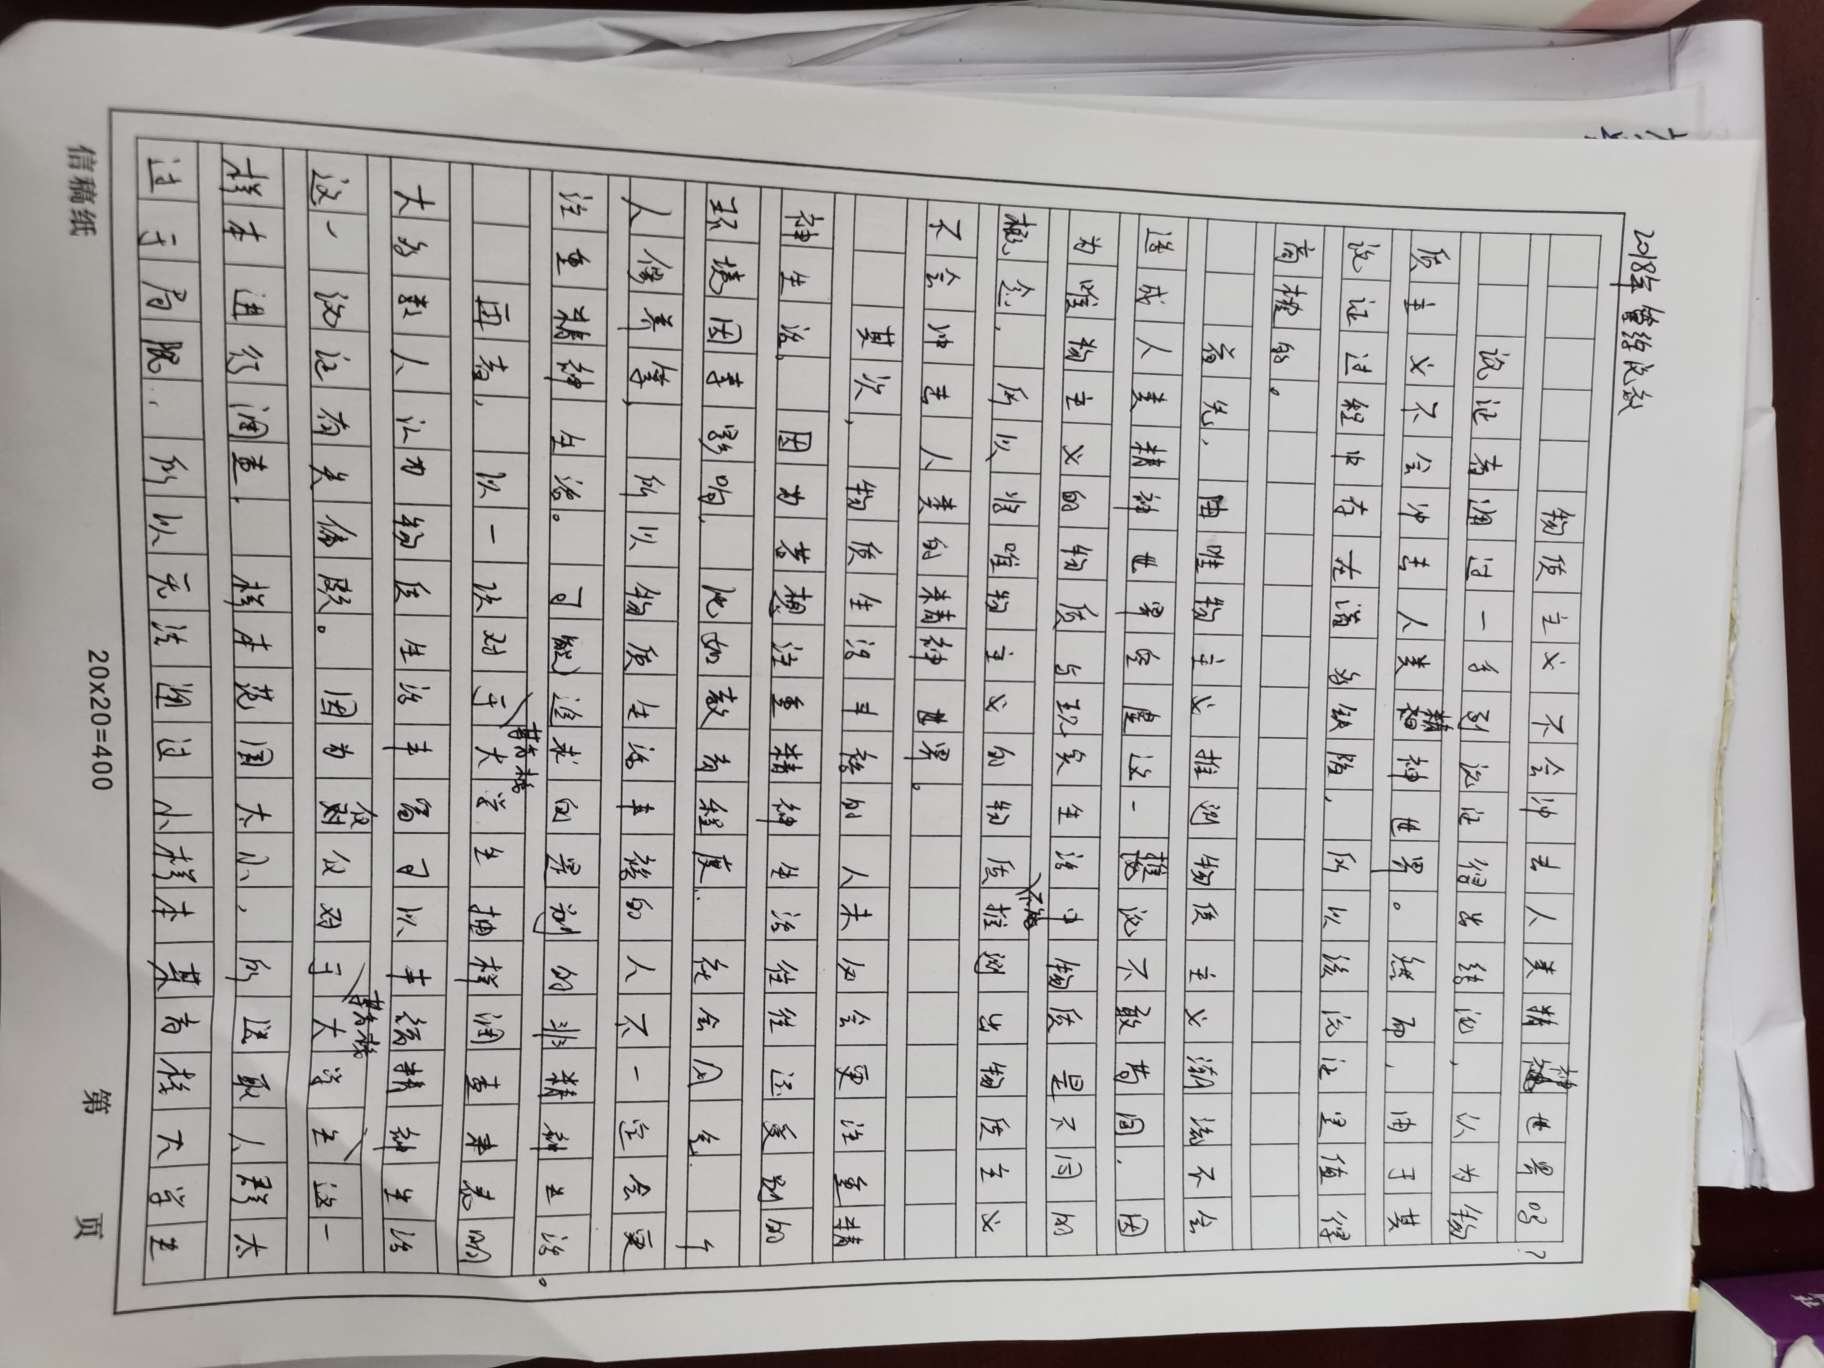 2018年管综论效
物质主义不会冲击人类精神世界吗？
论证者通过一系列论证得出结论，以为物
质主义不会冲击人类精神世界。然而，由于其
论证过程中存在诸多缺陷，所以该论证是值得
商榷的。
首先，由唯物主义推测物质主义潮流不会
造成人类精神世界空虚这一推论不敢苟同，因
为唯物主义的物质与现实生活中物质是不同的
概念，所以将唯物主义的物质推测出物质主义
不能
不会冲击人类的精神世界。
其次，物质生活丰裕的人未必会更注重精
神生活。因为若想注重精神生活往往还受别的
环境因素影响，比如教育程度、社会风气、个
人修养等，所以物质生活丰裕的人不一定会更
注重精神生活。可能追求的果别的非精神生活。
再者，以一次对于大学生抽样调查来表明
某高校
大多数人认为物质生活丰富可以丰富精神生活
这一论证有失偏颇。因为仅仅对于大学生这一
某高校
样本进行调查，样本范围太小，所选取人群太
过于局限，所以无法通过小样本某高校大学生
信稿纸
20x20=400
第 页